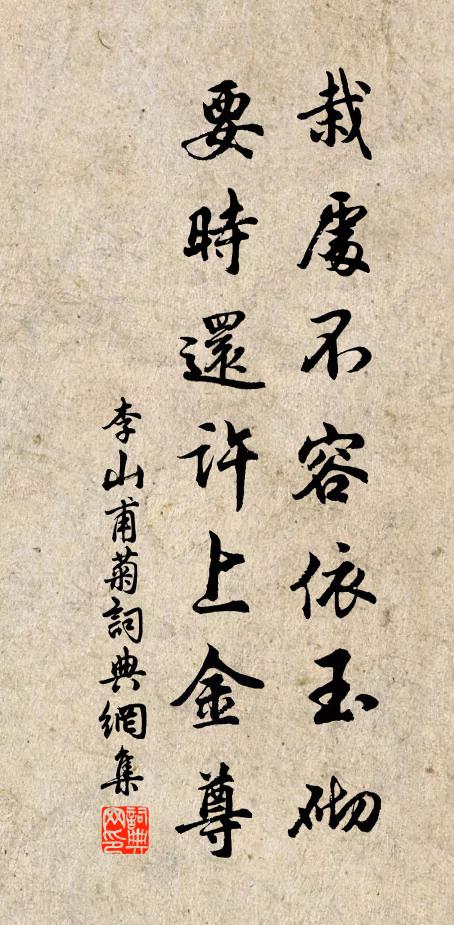 栽處不容依玉砌
要時還許上金尊
李山甫菊詞典網集
詞典網印